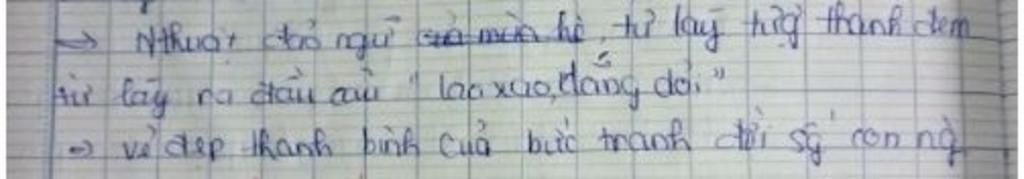 → Nthuật đảo ngữ của mùa hè, từ láy tượg thanh đem
từ láy ra đầu câu "lao xao, dắng dỏi"
→ vẻ đẹp thanh bình của bức tranh đời sg con ng